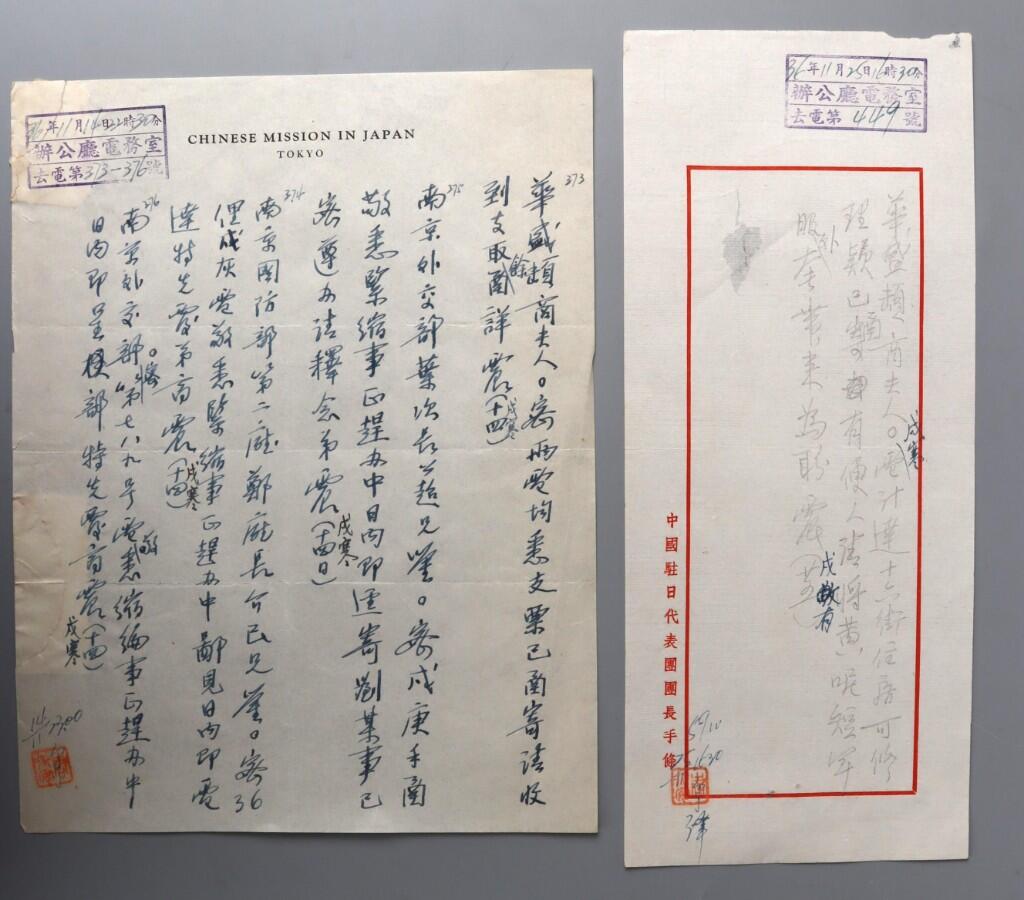 36年11月14日22時30分
辦公廳電務室
去電第373-376號
CHINESE MISSION IN JAPAN
TOKYO
373
華盛頓商夫人。密兩電均悉支票已函寄請收
到支取餘函詳震(十四)
戌寒
375
南京外交部葉次長公超兄鑒。密戌庚手函
敬悉緊縮事正趕办中日內即逕寄劉某事已
密遵办請釋念弟震(十四日)
戌寒
374
南京國防部第二廳鄭廳長介民兄鑒。密36
戌灰電敬悉緊縮事正趕办中鄙見日內即電
達特先覆弟商震(十四)
戌寒
376
南京外交部。密第七八九号電敬悉縮編事正趕办中
日內即呈核部特先覆商震(十四)
戌寒
14/11
36年11月25日16時30分
辦公廳電務室
去電第449號
華盛頓商夫人。戌寒電計達十六街住房可修
理頴已函有便人請將黃呢短軍
服外套帶來為盼震
戌敬有
中國駐日代表團團長手條